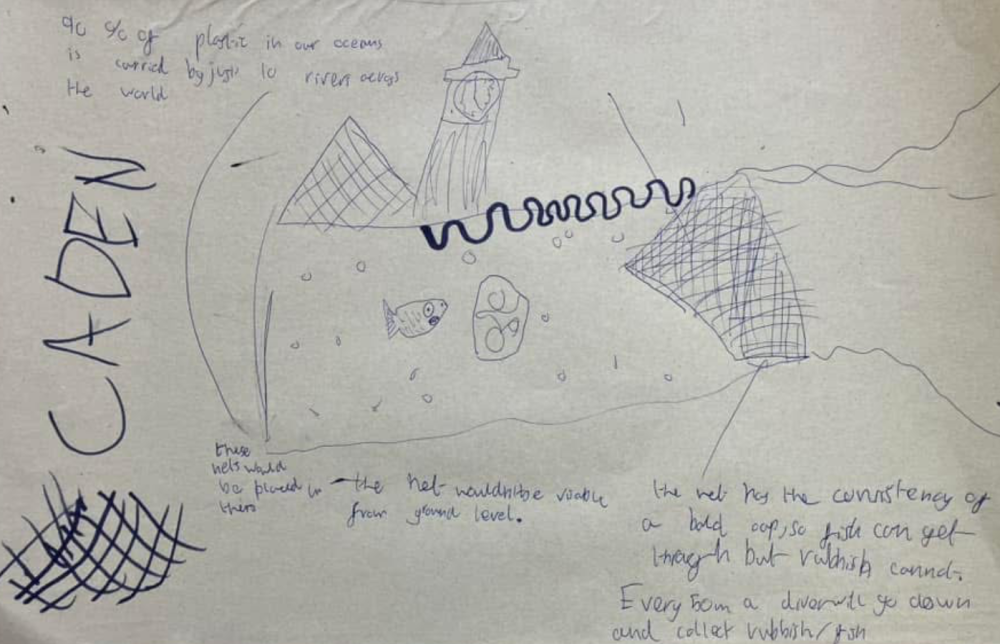 90 % of plastic in our oceans
is carried by just 10 rivers across
the world
CADEN
these
nets would
be placed in
the net wouldnt be visable
from ground level.
the net has the consistency of
a but rubbish cannot.
so fish can get
Every a diver will go down
and collect rubbish/fish